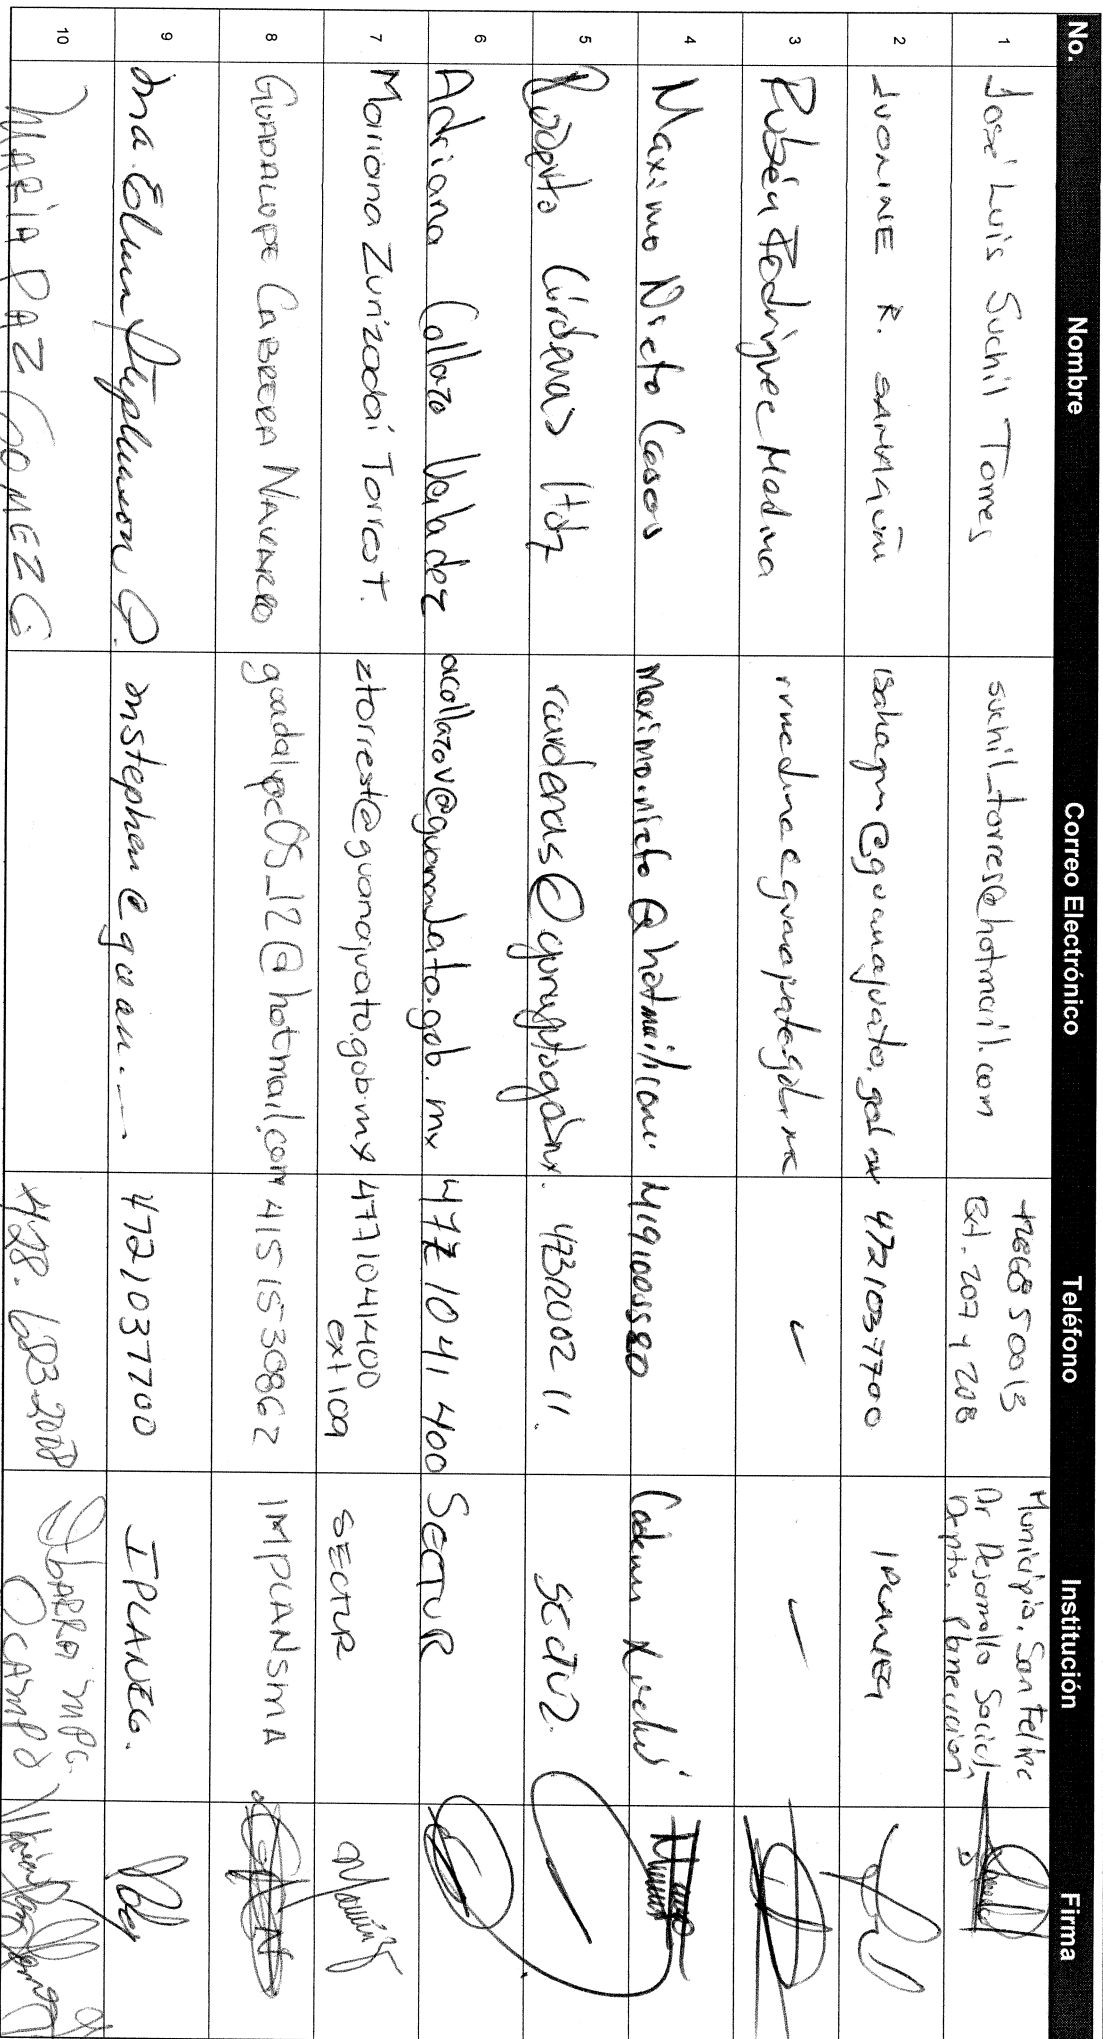 No. Nombre Correo Electrónico Teléfono Institución Firma
1 José Luis Suchil Torres suchil_torres@hotmail.com 4286850013 Ext. 207 y 208 Municipio. San Felipe Dr Desarrollo Social, Depto. Planeación
2 IVONINE R. SAHAGÚN isahagun@guanajuato.gob.mx 4721037700 IPLANEG
3 Rubén Rodríguez Medina rrmedina@guanajuato.gob.mx
4 Maximo Nieto Casas maximo.nieto@hotmail.com
5 Roberto Cárdenas Hdz rcardenas@guanajuato.gob.mx. SECTUR.
6 Adriana Collazo Valadez acollazov@guanajuato.gob.mx 477 1041 400 SECTUR
7 Mariana Zurizadai Torres T. ztorrest@guanajuato.gob.mx 4771041400 ext 109 SECTUR
8 GUADALUPE CABRERA NAVARRO guadalupe05_12@hotmail.com 4151530862 IMPLANSMA
9 Ma. Elena Stephenson G. mstephen@guan... 4721037700 IPLANEG.
10 MARÍA PAZ GOMEZ G 428. 683-2078 IBARRA MPG. OCAMPO